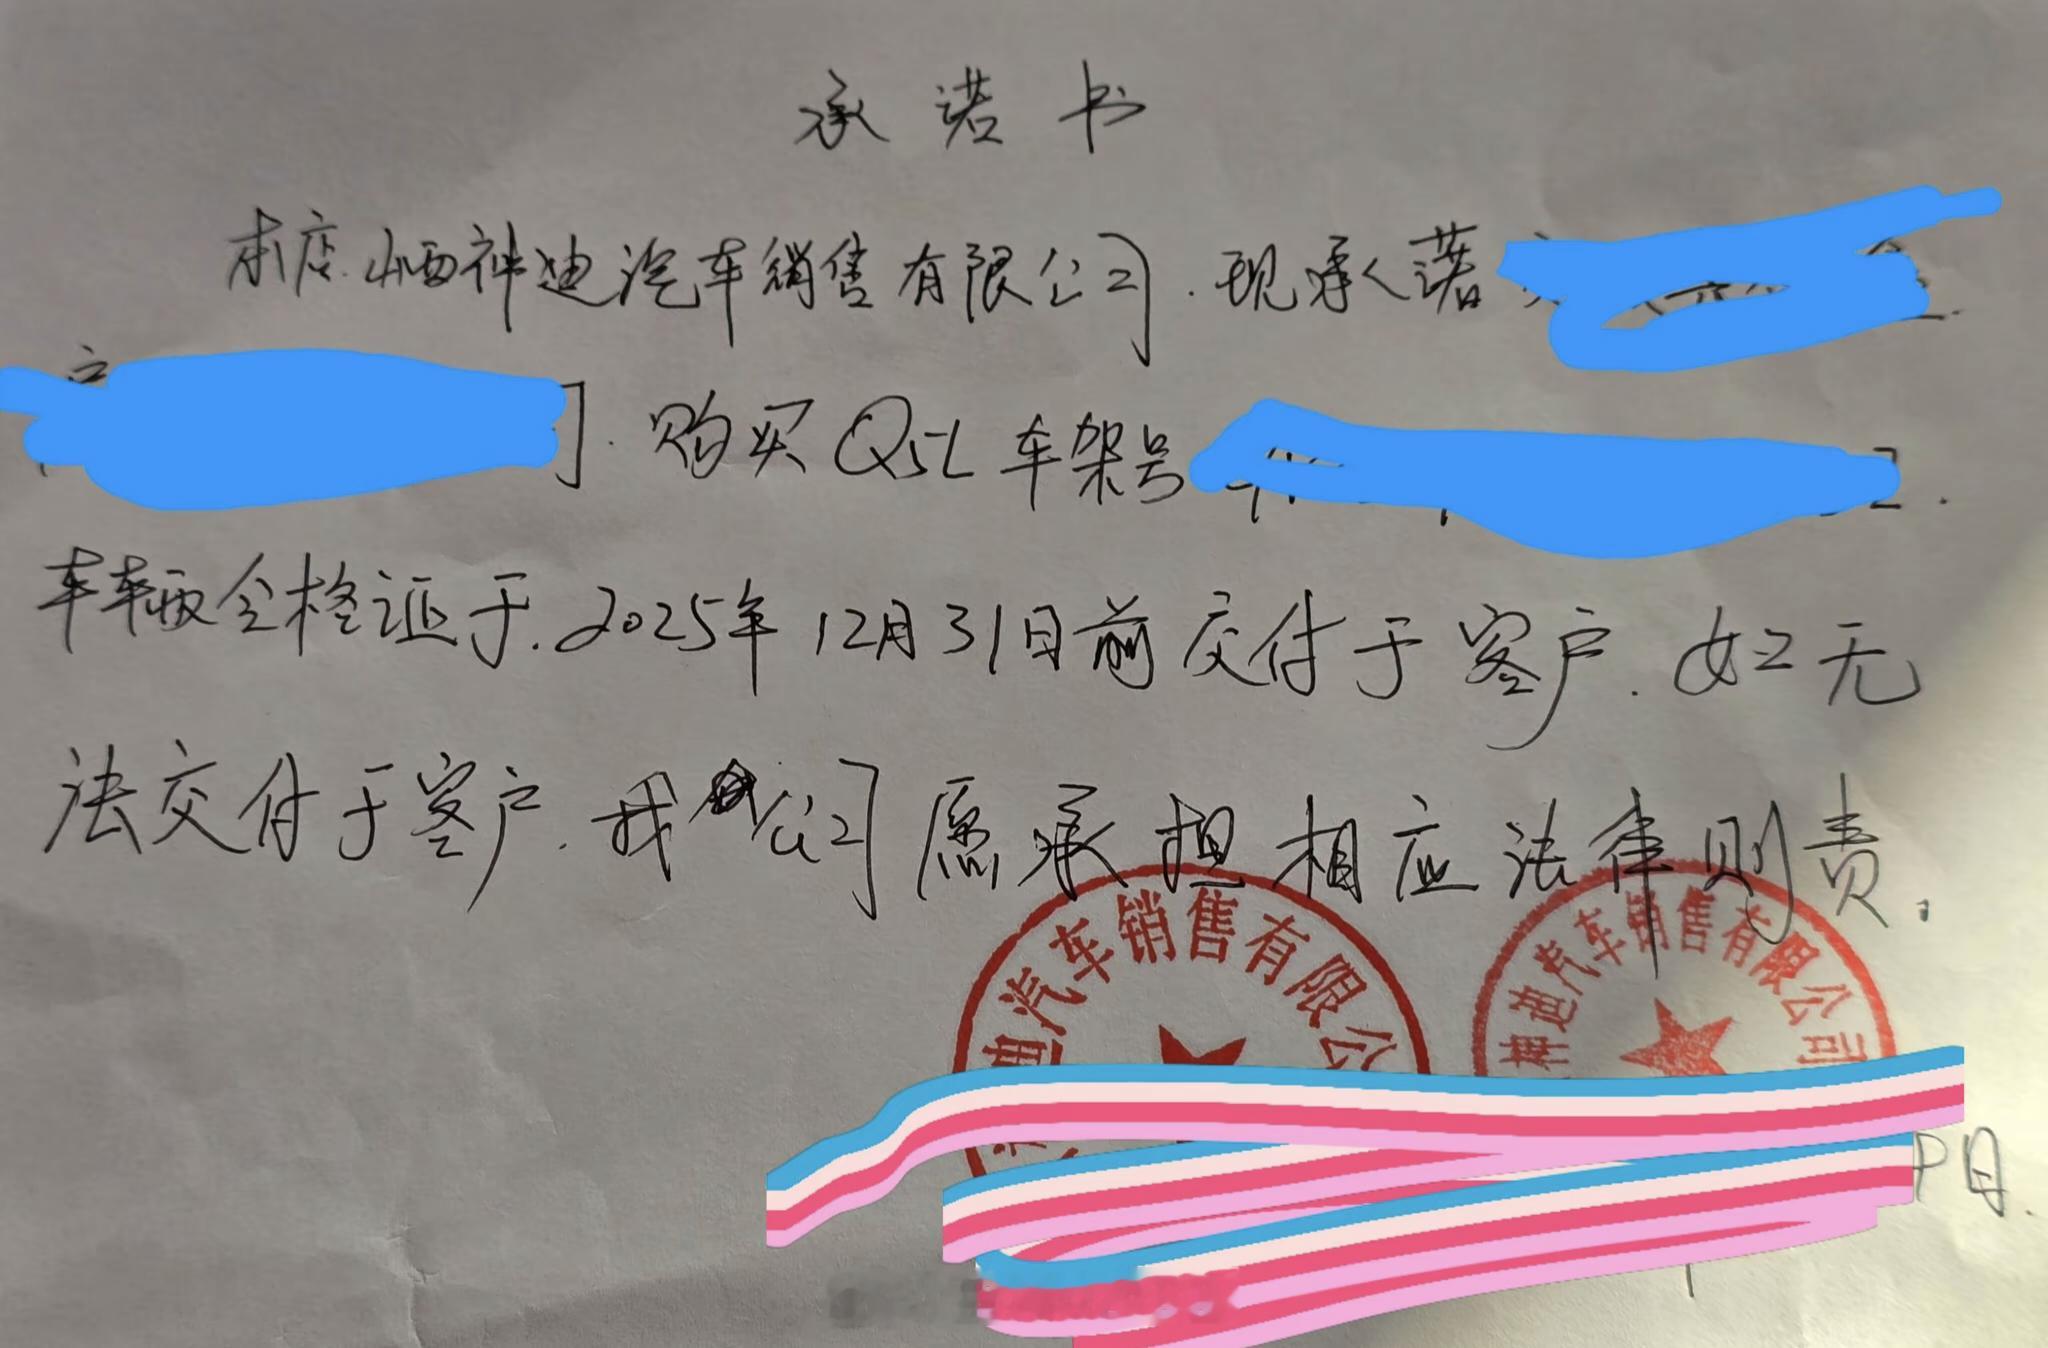 承诺书
本店山西神迪汽车销售有限公司.现承诺
购买Q5L车架号
车辆合格证于.2025年12月31日前交付于客户.如无
法交付于客户.我公司愿承担相应法律则责.
迪汽车销售有限公
神迪汽车销售有限公司
日.